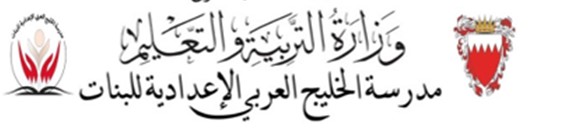 وزارة التربية والتعليم
مدرسة الخليج العربي الإعدادية للبنات